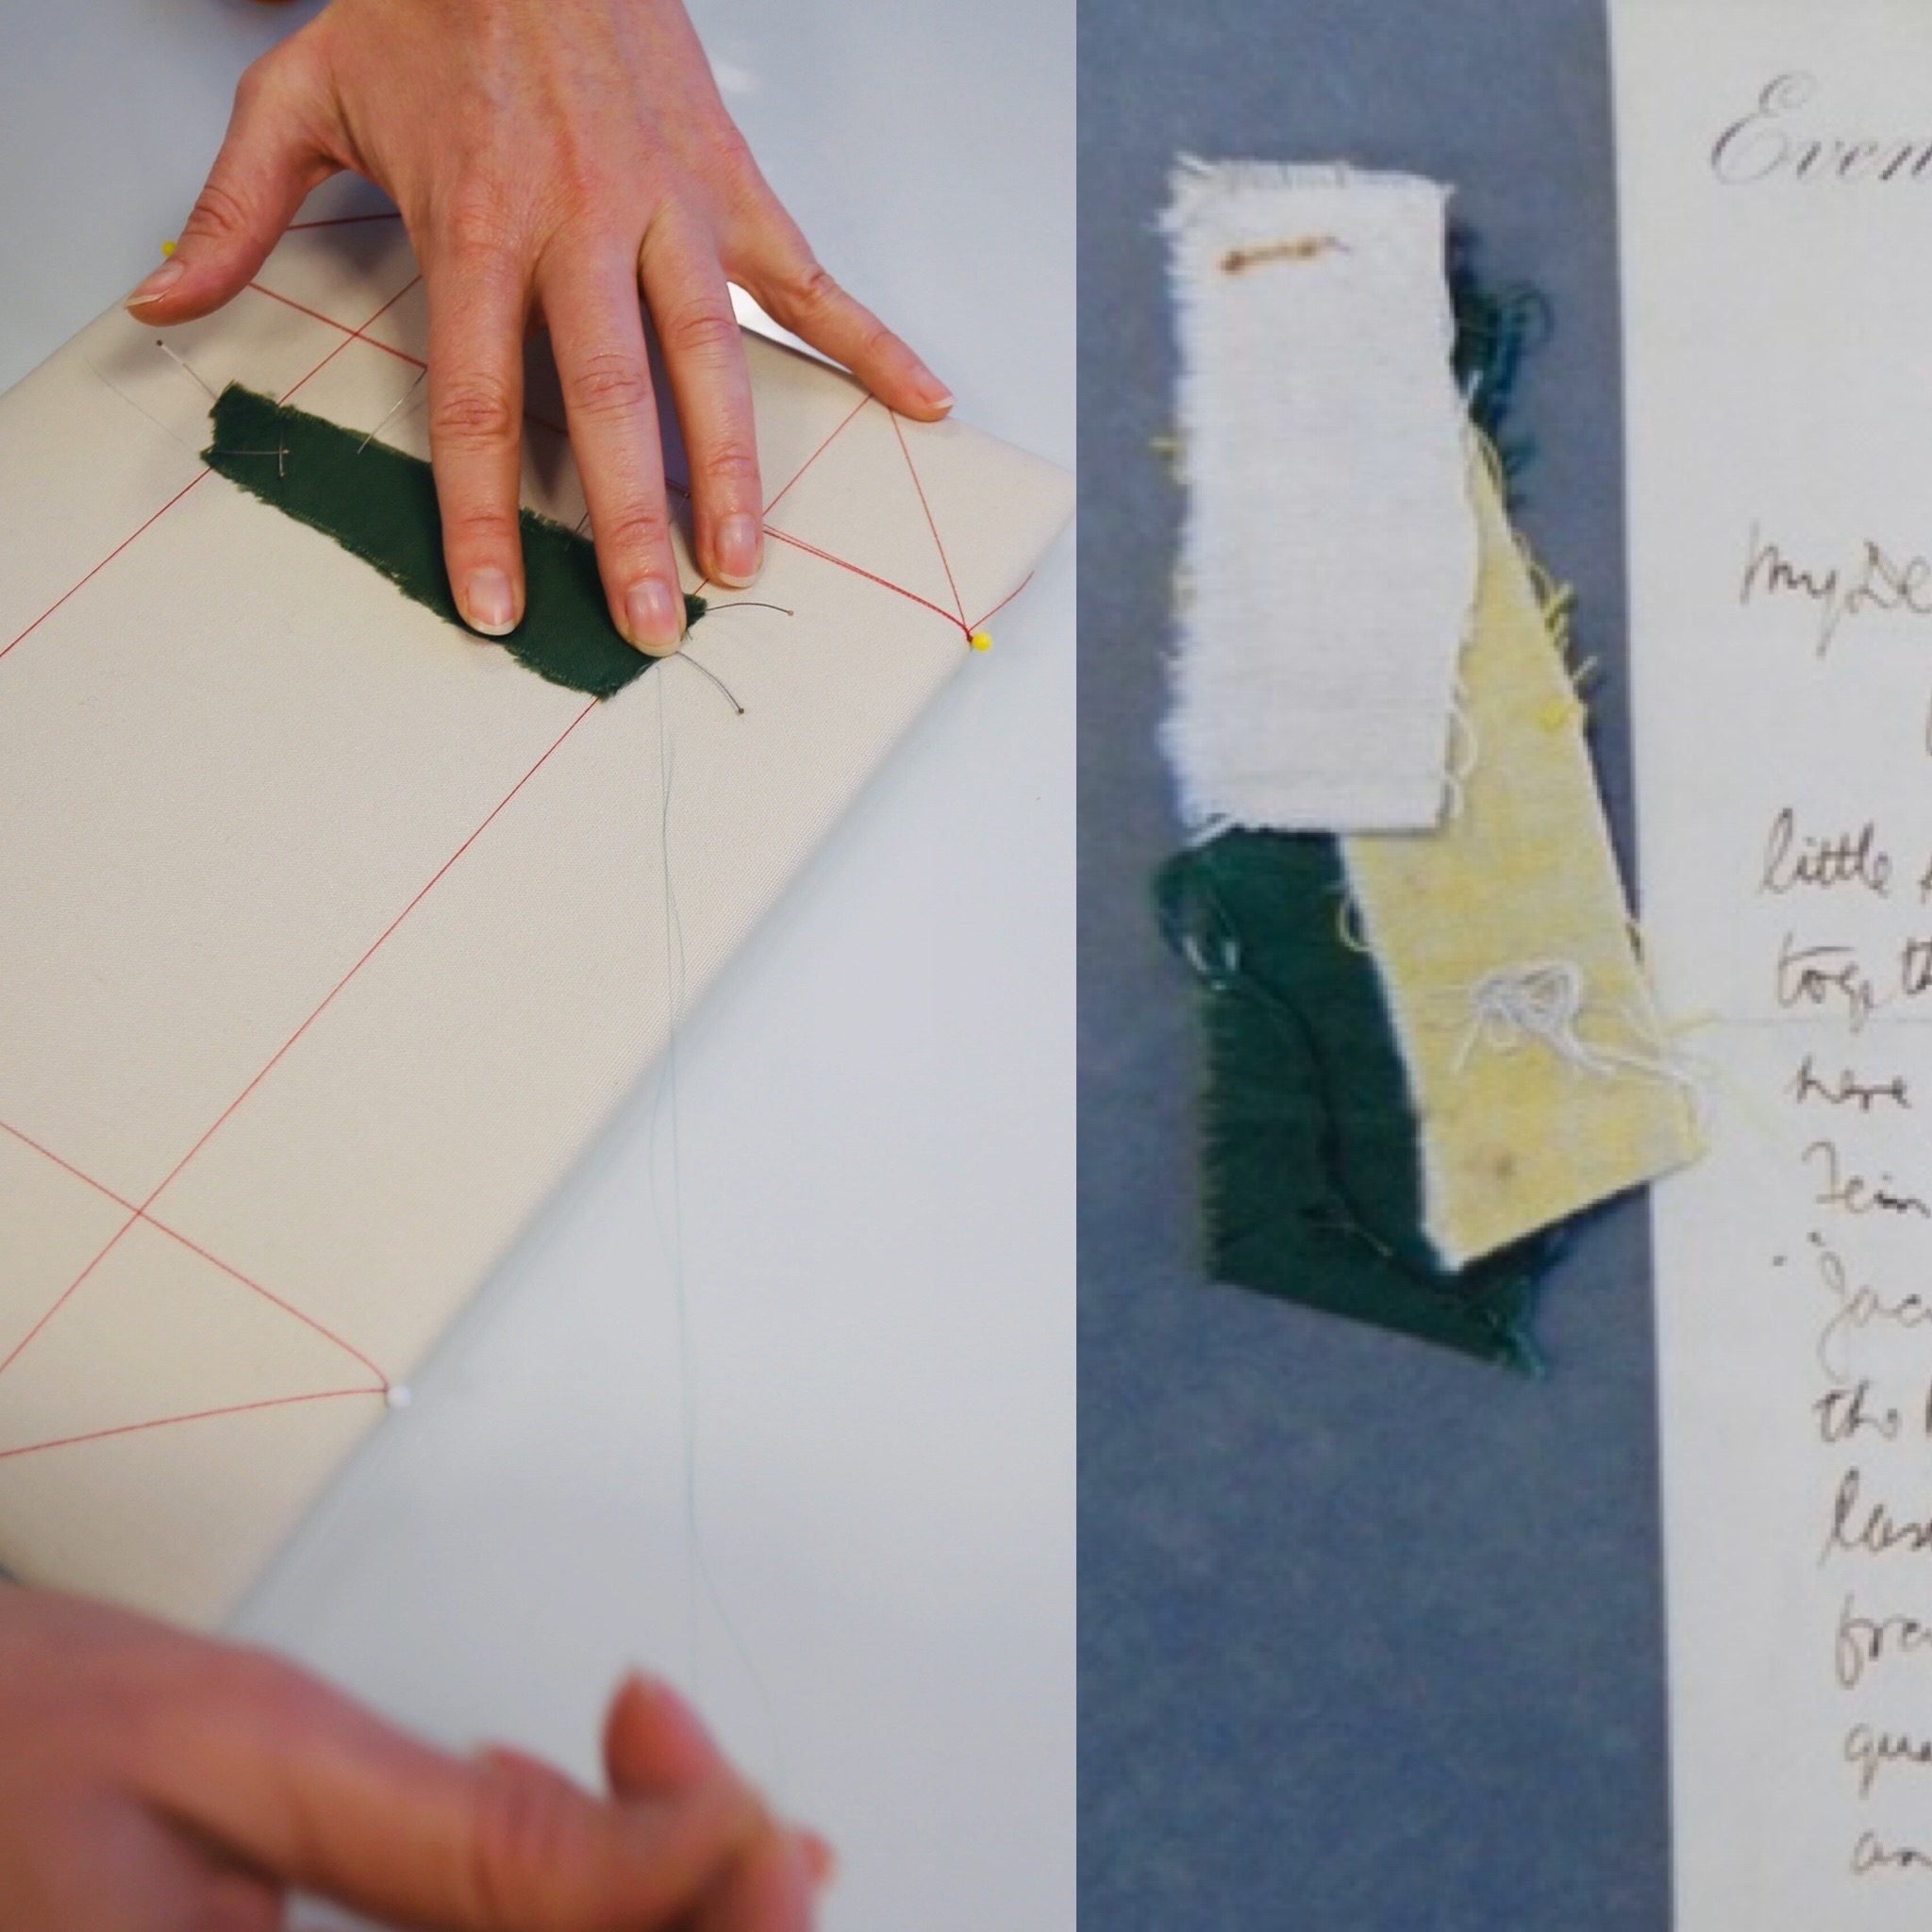 Even
My De
little
toge th
here
Fein
"Jac
the
las
fre
que
an